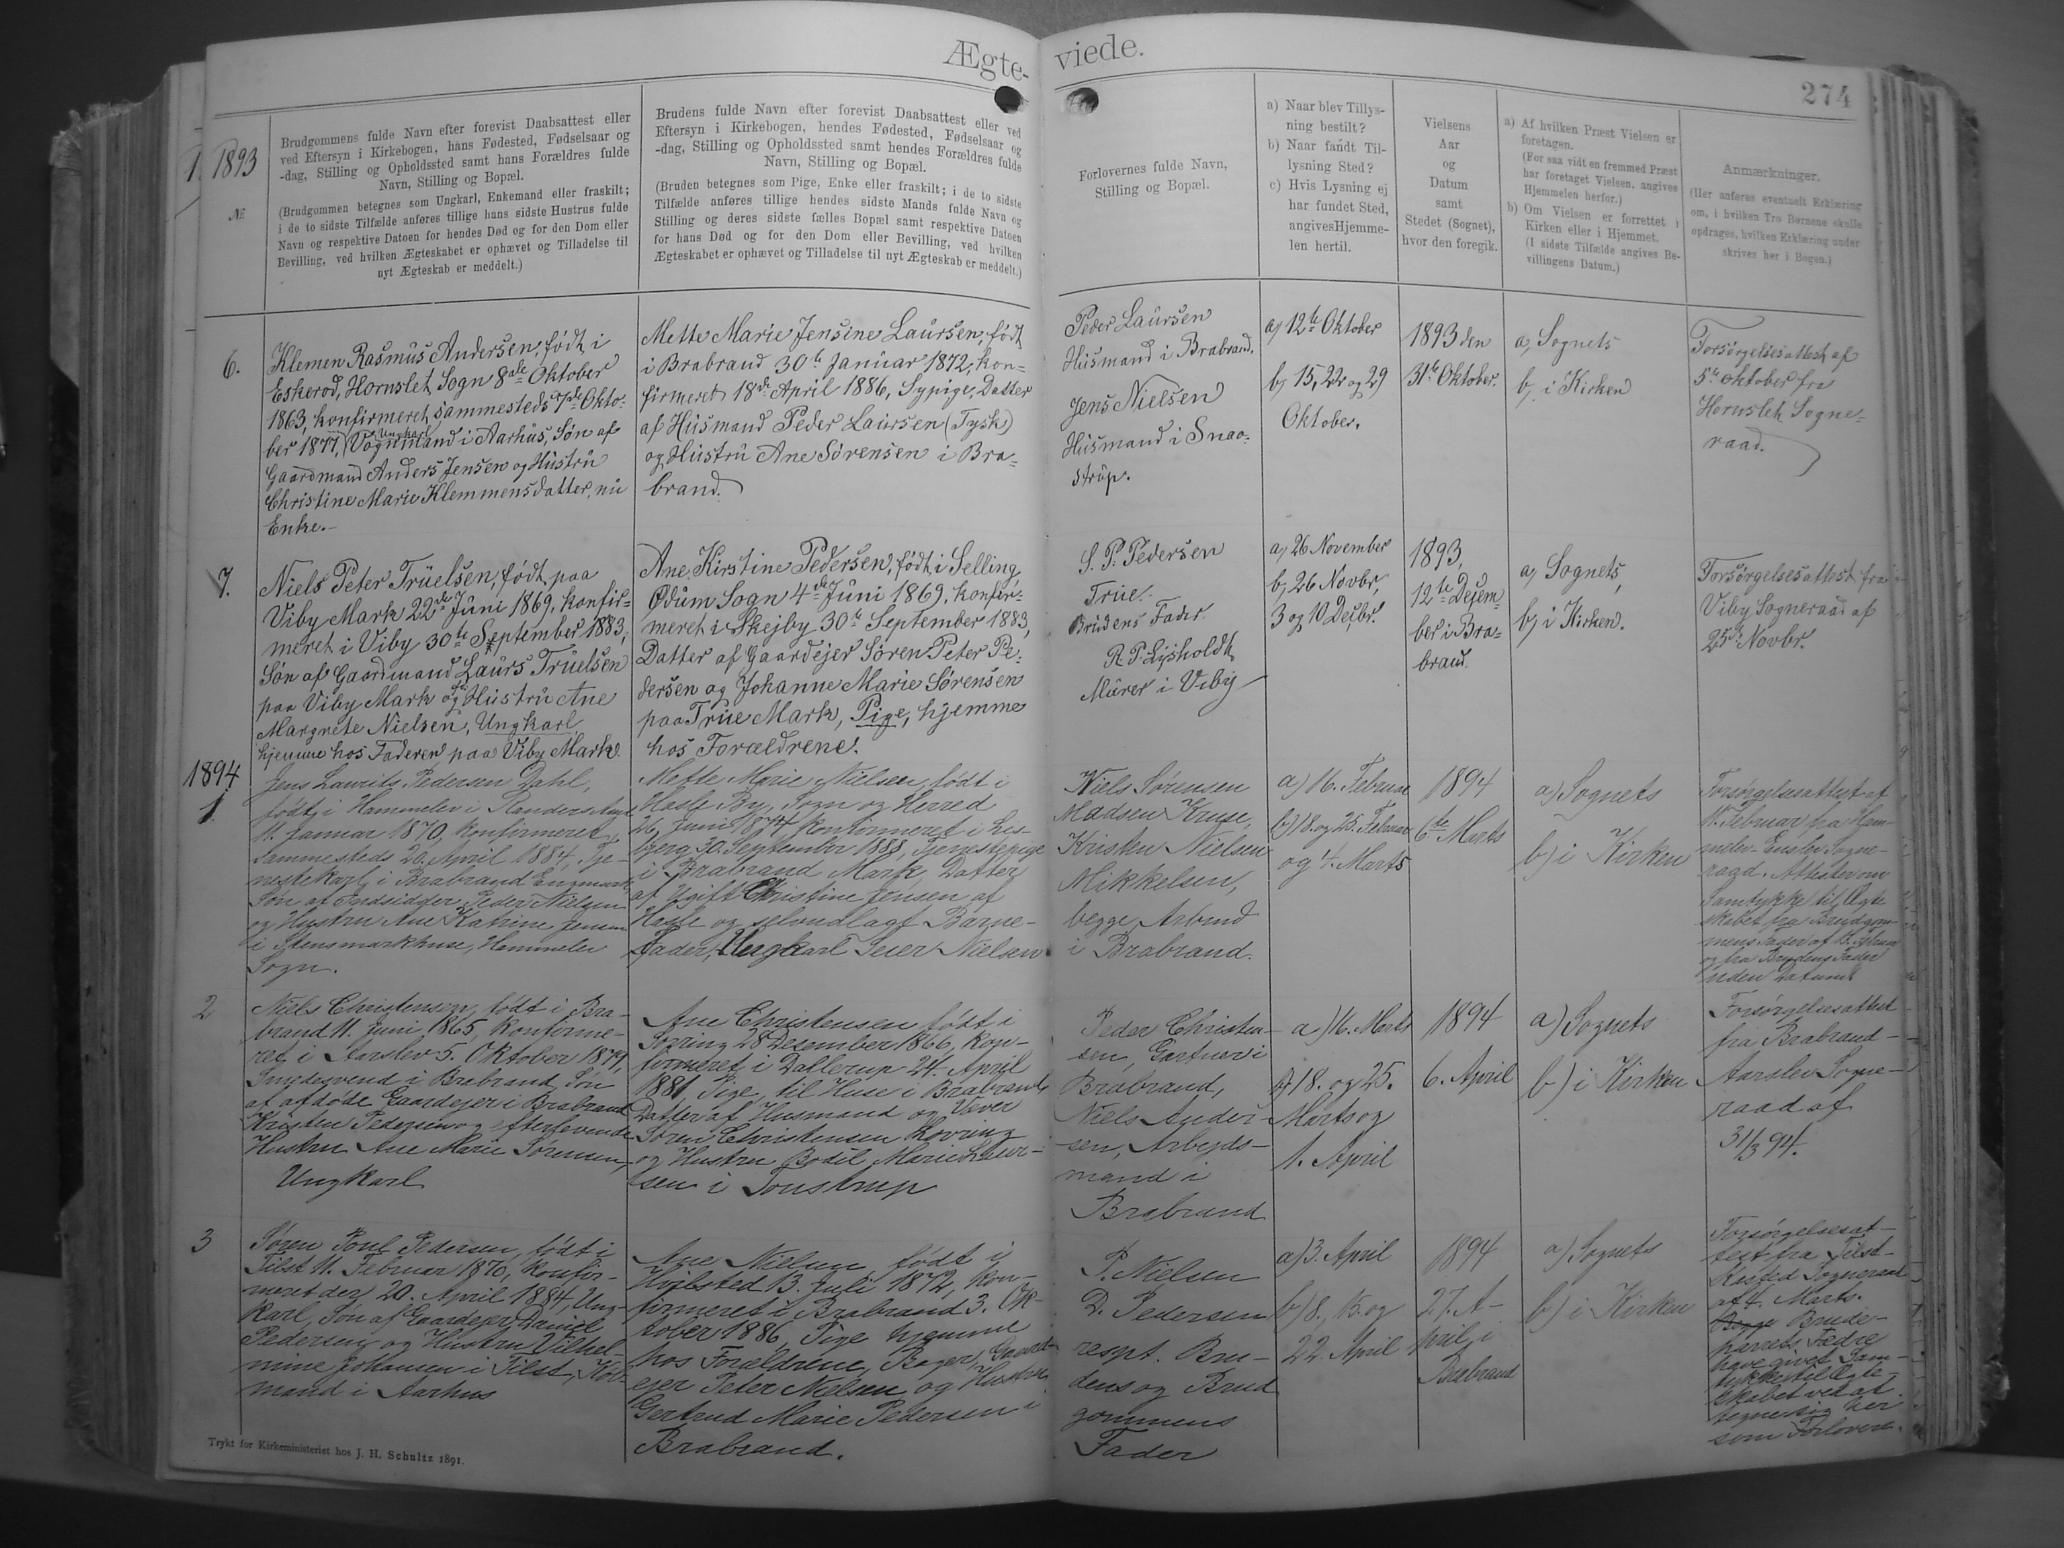 Ægte-
viede.
274
1893
№
Brudgommens fulde Navn efter forevist Daabsattest eller
ved Eftersyn i Kirkebogen, hans Fødested, Fødselsaar og
-dag, Stilling og Opholdssted samt hans Forældres fulde
Navn, Stilling og Bopæl.
(Brudgommen betegnes som Ungkarl, Enkemand eller fraskilt;
i de to sidste Tilfælde anføres tillige hans sidste Hustrus fulde
Navn og respektive Datoen for hendes Død og for den Dom eller
Bevilling, ved hvilken Ægteskabet er ophævet og Tilladelse til
nyt Ægteskab er meddelt.)
Brudens fulde Navn efter forevist Daabsattest eller ved
Eftersyn i Kirkebogen, hendes Fødested, Fødselsaar og
-dag, Stilling og Opholdssted samt hendes Forældres fulde
Navn, Stilling og Bopæl.
(Bruden betegnes som Pige, Enke eller fraskilt; i de to sidste
Tilfælde anføres tillige hendes sidste Mands fulde Navn og
Stilling og deres sidste fælles Bopæl samt respektive Datoen
for hans Død og for den Dom eller Bevilling, ved hvilken
Ægteskabet er ophævet og Tilladelse til nyt Ægteskab er meddelt.)
Forlovernes fulde Navn,
Stilling og Bopæl.
a) Naar blev Tillys-
ning bestilt?
b) Naar fandt Til-
lysning Sted?
c) Hvis Lysning ej
har fundet Sted,
angives Hjemme-
len hertil.
Vielsens
Aar
og
Datum
samt
Stedet (Sognet),
hvor den foregik.
a) Af hvilken Præst Vielsen er
foretagen.
(For saa vidt en fremmed Præst
har foretaget Vielsen, angives
Hjemmelen herfor.)
b) Om Vielsen er forrettet i
Kirken eller i Hjemmet.
(I sidste Tilfælde angives Be-
villingens Datum.)
Anmærkninger.
(Her anføres eventuelt Erklæring
om, i hvilken Tro Børnene skulle
opdrages, hvilken Erklæring under
skrives her i Bogen.)
6.
Klemen Rasmus Andersen, født i
Eskerod, Hornslet Sogn 8de Oktober
1863, konfirmeret sammesteds 7de Okto-
ber 1877, Ungkarl Vognmand i Aarhus, Søn af
Gaardmand Anders Jensen og Hustru
Christine Marie Klemmensdatter, nu
Enke.-
Mette Marie Jensine Laursen, født
i Brabrand 30te Januar 1872, kon-
firmeret 18de April 1886, Sypige, Datter
af Husmand Peder Laursen (Tysk)
og Hustru Ane Sørensen i Bra-
brand.
Peder Laursen
Husmand i Brabrand.
Jens Nielsen
Husmand i Snaa-
strup.
a, 12te Oktober
b, 15, 22 og 29
Oktober.
1893 den
31te Oktober.
a, Sognets
b, i Kirken
Forsørgelsesattest af
5te Oktober fra
Hornslet Sogne-
raad.
7.
Niels Peter Truelsen, født paa
Viby Mark 22de Juni 1869, konfir-
meret i Viby 30te September 1883,
Søn af Gaardmand Laurs Truelsen
paa Viby Mark og Hustru Ane
Margrete Nielsen, Ungkarl
hjemme hos Faderen paa Viby Mark.
Ane Kirstine Pedersen, født i Selling,
Ødum Sogn 4de Juni 1869, konfir-
meret i Skejby 30te September 1883,
Datter af Gaardejer Søren Peter Pe-
dersen og Johanne Marie Sørensen
paa True Mark, Pige, hjemme
hos Forældrene.
S. P. Pedersen
True.
Brudens Fader
R. P. Lysholdt
Murer i Viby
a, 26 November
b, 26 Novbr,
3 og 10 Decbr.
1893,
12te Dezem-
ber i Bra-
brand.
a, Sognets,
b, i Kirken.
Forsørgelsesattest fra
Viby Sogneraad af
25de Novbr.
1894
1.
Jens Laurits Pedersen Dahl,
født i Hammelev i Randers Amt
11. Januar 1870, konfirmeret
sammesteds 20. April 1884, Tje-
nestekarl i Brabrand Engmark,
Søn af Indsidder Peder Nielsen
og Hustru Ane Katrine Jensen
i Stensmarkhuse, Hammelev
Sogn.
Mette Marie Nielsen, født i
Hasle By, Sogn og Herred
26. Juni 1874, konfirmeret i Lis-
bjerg 30. September 1888, Tjenestepige
i Brabrand Mark, Datter
af Ugift Christine Jensen af
Hasle og selvudlagt Barne-
fader, Ungkarl Peter Nielsen
Niels Sørensen
Madsen Kruse,
Kristen Nielsen
Mikkelsen,
begge Arbmd
i Brabrand.
a) 16. Februar
b) 18. og 25. Februar
og 4. Marts
1894
6te Marts
a) Sognets
b) i Kirken
Forsørgelsesattest af
11. Februar fra Ham-
melev-Enslev Sogne-
raad. Attester om
Samtykke til Ægte
skabet fra Brudgom-
mens Fader af 13. Februar
og fra Brudens Fader
uden Datum.
2
Niels Christensen, født i Bra-
brand 11. Juni 1865, konfirme-
ret i Aarslev 5. Oktober 1879,
Smedesvend i Brabrand, Søn
af afdøde Gaardejer i Brabrand
Kristen Pedersen og efterlevende
Hustru Ane Marie Sørensen,
Ungkarl
Ane Christensen, født i
28 Desember 1866, kon-
firmeret i Dallerup 24. April
1881, Pige, til Huse i Brabrand,
Datter af Husmand og Væver
Søren Christensen Kovring
og Hustru Bodil Marie Laur-
sen i Tonstrup
Peder Christen-
sen, Gartner i
Brabrand,
Niels Ander-
sen, Arbejds-
mand i
Brabrand
a) 16. Marts
b) 18. og 25.
Marts og
1. April
1894
6. April
a) Sognets
b) i Kirken
Forsørgelsesattest
fra Brabrand-
Aarslev Sogne-
raad af
31/3 94.
3
Søren Poul Pedersen, født i
Tilst 11. Februar 1870, konfir-
meret der 20. April 1884, Ung-
karl, Søn af Gaardejer Daniel
Pedersen og Hustru Vilhel-
mine Johansen i Tilst, Køb-
mand i Aarhus
Ane Nielsen, født i
13. Juli 1872, kon-
firmeret i Brabrand 3. Ok-
tober 1886, Pige hjemme
hos Forældrene, Bager, Gaard-
ejer Peter Nielsen og Hustru
Gertrud Marie Pedersen i
Brabrand.
P. Nielsen
D. Pedersen
respt. Bru-
dens og Brud
gommens
Fader
a) 3. April
b) 8., 15. og
22. April
1894
27. A-
pril i
Brabrand
a) Sognets
b) i Kirken
Forsørgelsesat-
test fra Tilst-
Kasted Sogneraad
af 4. Marts.
Brude-
parrets Fædre
have givet Sam-
tykke til Ægte-
skabet ved at
tegne sig her
som Forlovere.
Trykt for Kirkeministeriet hos J. H. Schultz 1891.